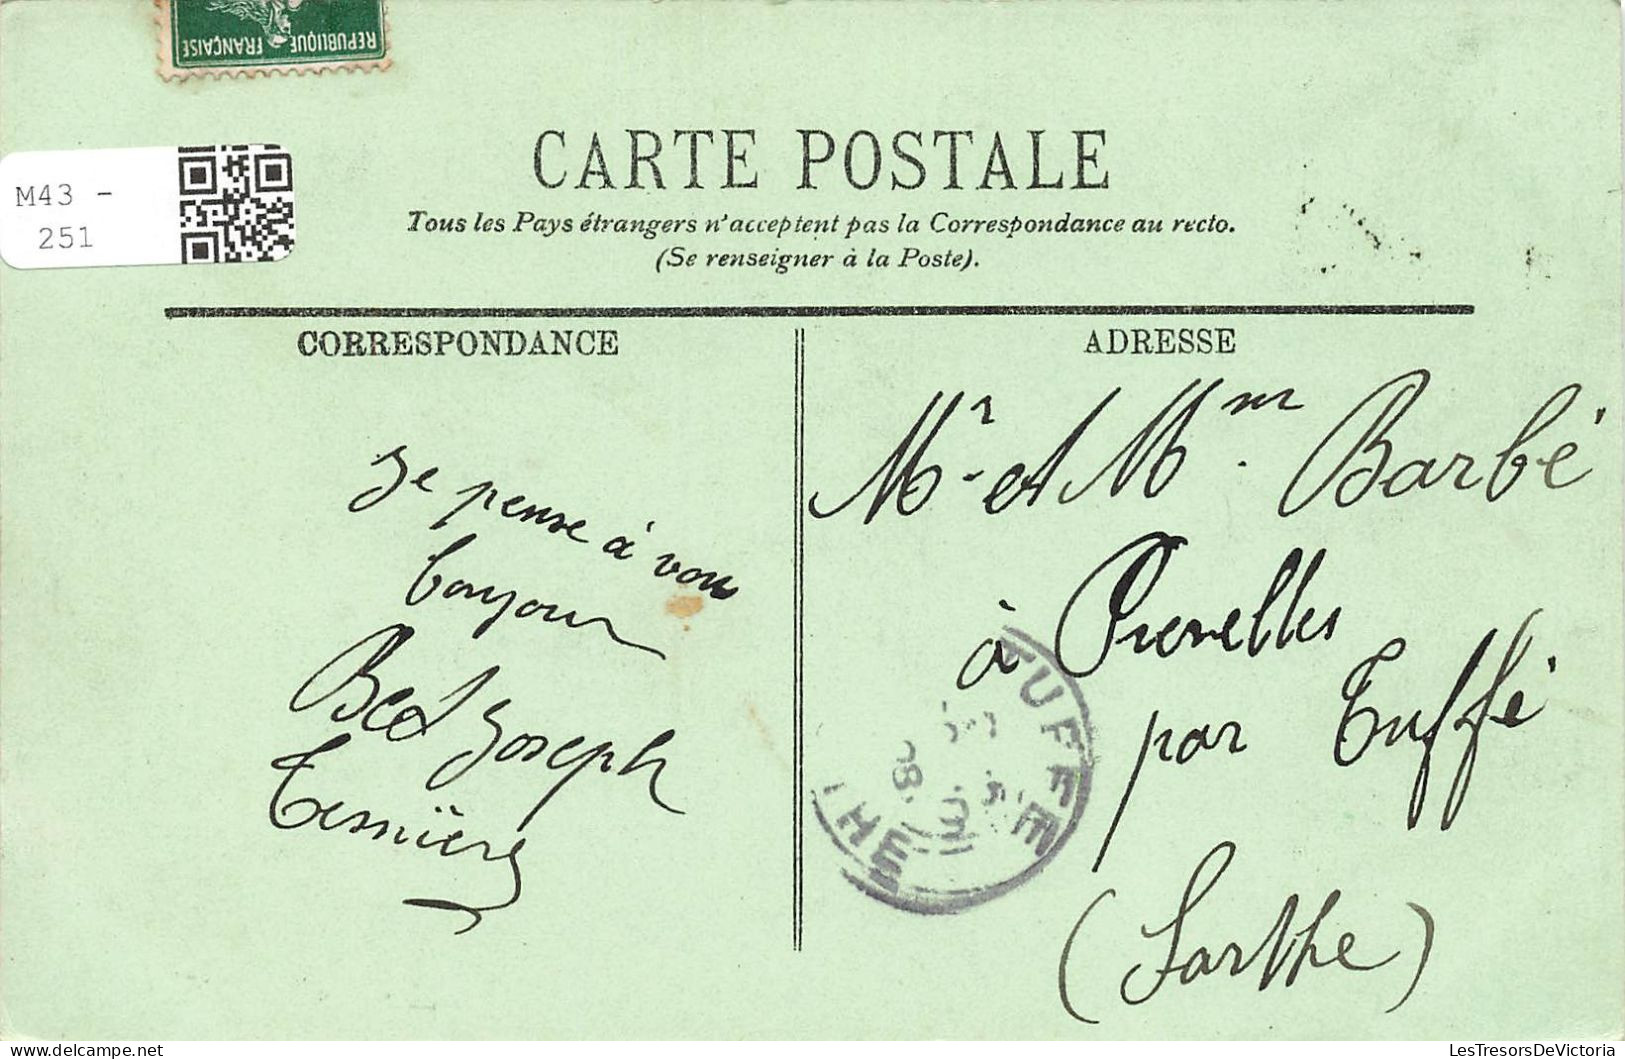 REPUBLIQUE FRANÇAISE
M43 -
251
CARTE POSTALE
Tous les Pays étrangers n'acceptent pas la Correspondance au recto.
(Se renseigner à la Poste).
CORRESPONDANCE
Je pense à vous
bonjour
Joseph
ADRESSE
Mr et Mm Barbé
à
par Tuffé
(Sarthe)
TUFFÉ
THE
08
LesTresorsDeVictoria